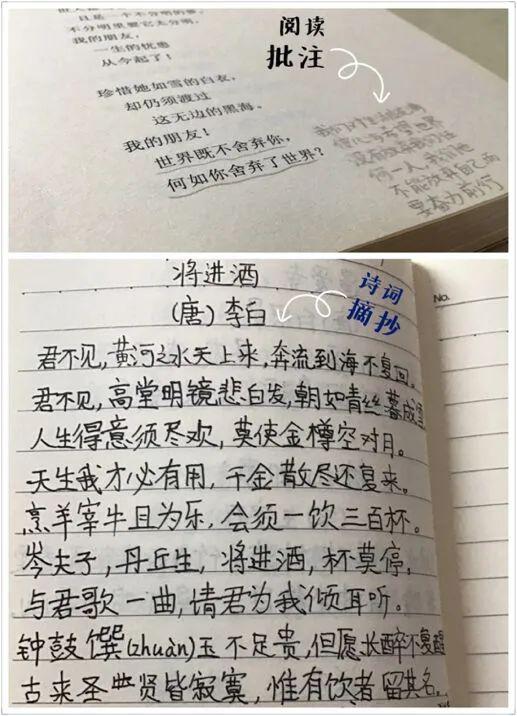 且是一个不分明的梦,
不分明里要它太分明,
我的朋友,
一生的忧患
从今起了!
珍惜她如雪的白衣,
却仍须渡过
这无边的黑海。
我的朋友!
世界既不舍弃你,
何如你舍弃了世界?
阅读
批注
没有放弃我们任
何一人,我们也
不能放弃自己而
要奋力前行
将进酒
(唐)李白
诗词
摘抄
No.
君不见,黄河之水天上来,奔流到海不复回。
君不见,高堂明镜悲白发,朝如青丝暮成雪
人生得意须尽欢,莫使金樽空对月。
天生我才必有用,千金散尽还复来。
烹羊宰牛且为乐,会须一饮三百杯。
岑夫子,丹丘生,将进酒,杯莫停,
与君歌一曲,请君为我倾耳听。
钟鼓馔(zhuàn)玉不足贵,但愿长醉不复醒
古来圣贤皆寂寞,惟有饮者留其名。